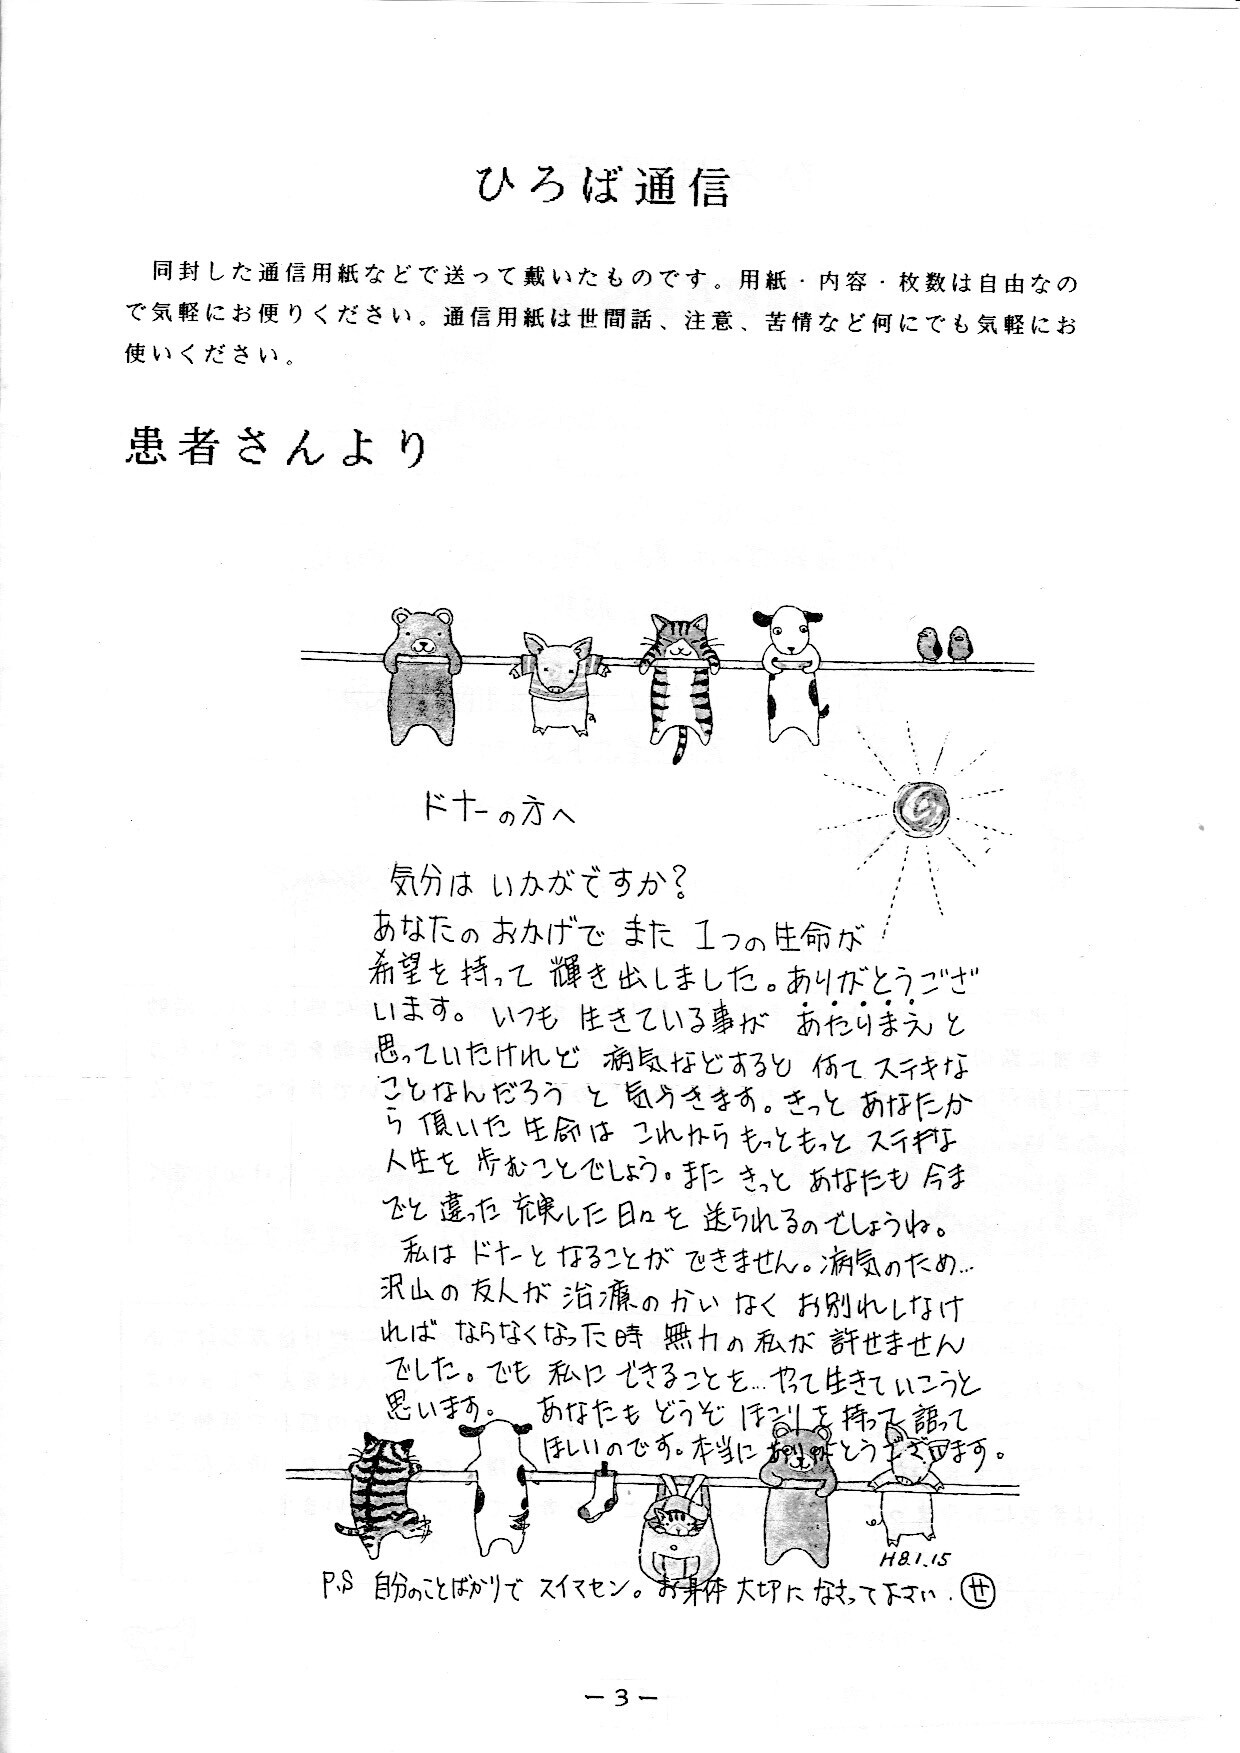 ひろば通信
同封した通信用紙などで送って戴いたものです。用紙・内容・枚数は自由なの
で気軽にお便りください。通信用紙は世間話、注意、苦情など何にでも気軽にお
使いください。
患者さんより
ドナーの方へ
気分は いかがですか?
あなたの おかげで また 1つの生命が
希望を 持って 輝き出しました。ありがとうござ
います。 いつも 生きている事が あたりまえ と
思っていたけれど 病気などすると 何て ステキな
ことなんだろう と 気づきます。きっと あなたか
ら 頂いた 生命は これから もっともっと ステキな
人生を 歩むことでしょう。また きっと あなたも 今ま
でと 違った 充実した 日々を 送られるのでしょうね。
私は ドナーと なることが できません。病気のため…
沢山の 友人が 治療の かい なく お別れしなけ
れば ならなくなった時 無力の 私が 許せません
でした。でも 私に できることを… やって生きていこうと
思います。 あなたも どうぞ ほこりを 持って 語って
ほしいのです。本当に ありがとうございます。
H8.1.15
P.S 自分のことばかりで スイマセン。お身体 大切に なさって下さい. ㊉
— 3 —